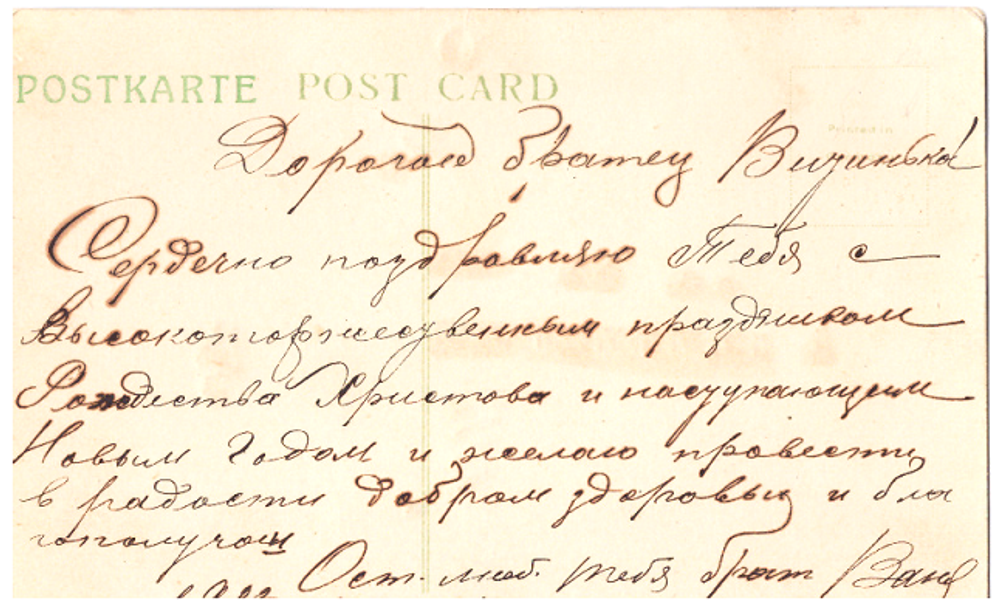 POSTKARTE POST CARD
Printed in
Дорогой братец
Сердечно поздравляю Тебя с
Высокоторжественным праздником
Рождества Христова и наступающим
Новым Годом и желаю провести
в радости добром здоровьи и бла
гополучии
Ост. люб. тебя брат Ваня